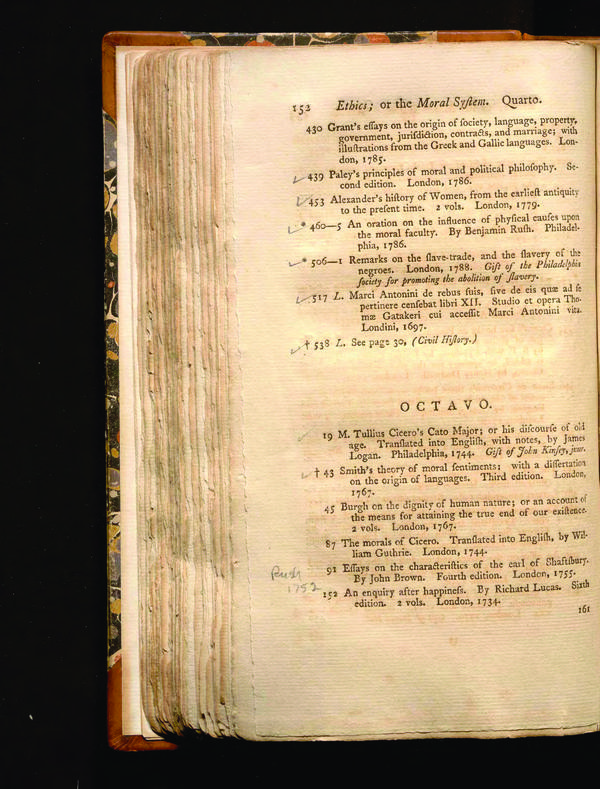 152 Ethics; or the Moral Syſtem. Quarto.
430 Grant's eſſays on the origin of ſociety, language, property,
government, juriſdiction, contracts, and marriage; with
illuſtrations from the Greek and Gallic languages. Lon-
don, 1785.
439 Paley's principles of moral and political philoſophy. Se-
cond edition. London, 1786.
453 Alexander's hiſtory of Women, from the earlieſt antiquity
to the preſent time. 2 vols. London, 1779.
* 460—5 An oration on the influence of phyſical cauſes upon
the moral faculty. By Benjamin Ruſh. Philadel-
phia, 1786.
* 506—1 Remarks on the ſlave-trade, and the ſlavery of the
negroes. London, 1788. Gift of the Philadelphia
ſociety for promoting the abolition of ſlavery.
517 L. Marci Antonini de rebus ſuis, ſive de eis quæ ad ſe
pertinere cenſebat libri XII. Studio et opera Tho-
mæ Gatakeri cui acceſſit Marci Antonini vita.
Londini, 1697.
† 538 L. See page 30, (Civil Hiſtory.)
OCTAVO.
19 M. Tullius Cicero's Cato Major; or his diſcourſe of old
age. Tranſlated into Engliſh, with notes, by James
Logan. Philadelphia, 1744. Gift of John Kinſey, junr.
† 43 Smith's theory of moral ſentiments; with a diſſertation
on the origin of languages. Third edition. London,
1767.
45 Burgh on the dignity of human nature; or an account of
the means for attaining the true end of our exiſtence.
2 vols. London, 1767.
87 The morals of Cicero. Tranſlated into Engliſh, by Wil-
liam Guthrie. London, 1744.
91 Eſſays on the characteriſtics of the earl of Shaftſbury.
By John Brown. Fourth edition. London, 1755.
1752
152 An enquiry after happineſs. By Richard Lucas. Sixth
edition. 2 vols. London, 1734.
161